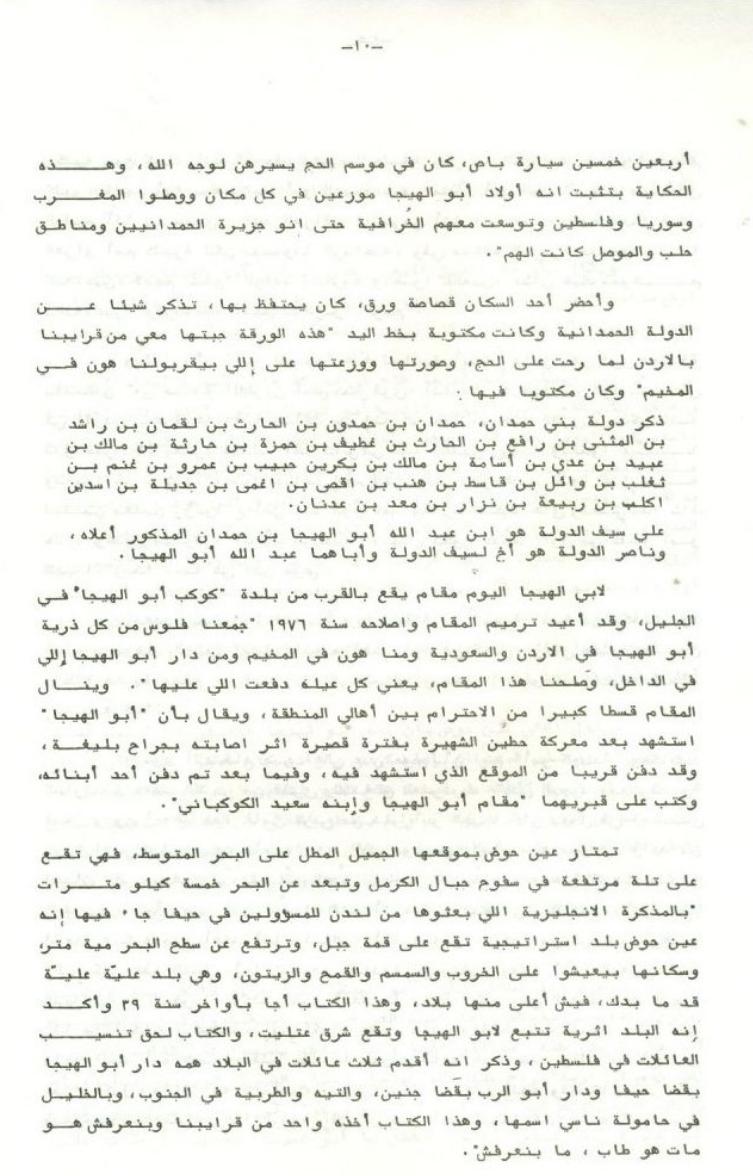 -١٠-
أربعين خمسين سيارة باص، كان في موسم الحج يسيرهن لوجه الله، وهـــذه
الحكاية بتثبت انه أولاد أبو الهيجا موزعين في كل مكان ووطلوا المغــرب
وسوريا وفلسطين وتوسعت معهم الخرافية حتى انو جزيرة الحمدانيين ومناطق
حلب والموصل كانت الهم".
وأحضر أحد السكان قصاصة ورق، كان يحتفظ بها، تذكر شيئا عــن
الدولة الحمدانية وكانت مكتوبة بخط اليد "هذه الورقة جبتها معي من قرايبنا
بالاردن لما رحت على الحج، وصورتها ووزعتها على إللي بيقربولنا هون فــي
المخيم" وكان مكتوبا فيها:
ذكر دولة بني حمدان، حمدان بن حمدون بن الحارث بن لقمان بن راشد
بن المثنى بن رافع بن الحارث بن غطيف بن حمزة بن حارثة بن مالك بن
عبيد بن عدي بن أسامة بن مالك بن بكربن حبيب بن عمرو بن غنم بــن
ثغلب بن وائل بن قاسط بن هنب بن اقصى بن اغمى بن جديلة بن اسدبن
اكلب بن ربيعة بن نزار بن معد بن عدنان.
علي سيف الدولة هو ابن عبد الله أبو الهيجا بن حمدان المذكور أعلاه،
وناصر الدولة هو أخ لسيف الدولة وأباهما عبد الله أبو الهيجا.
لابي الهيجا اليوم مقام يقع بالقرب من بلدة "كوكب أبو الهيجا" فــي
الجليل، وقد أعيد ترميم المقام واصلاحه سنة ١٩٧٦ "جمعنا فلوس من كل ذرية
أبو الهيجا في الاردن والسعودية ومنا هون في المخيم ومن دار أبو الهيجا إللي
في الداخل، وصلحنا هذا المقام، يعني كل عيله دفعت اللي عليها". وينــال
المقام قسطا كبيرا من الاحترام بين أهالي المنطقة، ويقال بأن "أبو الهيجا"
استشهد بعد معركة حطين الشهيرة بفترة قصيرة اثر اصابته بجراح بليغــة،
وقد دفن قريبا من الموقع الذي استشهد فيه، وفيما بعد تم دفن أحد أبنائه،
وكتب على قبريهما "مقام أبو الهيجا وإبنه سعيد الكوكباني".
تمتاز عين حوض بموقعها الجميل المطل على البحر المتوسط، فهي تقــع
على تلة مرتفعة في سفوح حبال الكرمل وتبعد عن البحر خمسة كيلو متــرات
"بالمذكرة الانجليزية اللي بعثوها من لندن للمسؤولين في حيفا جاء فيها إنه
عين حوض بلد استراتيجية تقع على قمة جبل، وترتفع عن سطح البحر مية متر،
وسكانها بيعيشوا على الخروب والسمسم والقمح والزيتون، وهي بلد عليّة عليّة
قد ما بدك، فيش أعلى منها بلاد، وهذا الكتاب أجا بأواخر سنة ٣٩ وأكــد
إنه البلد اثرية تتبع لابو الهيجا وتقع شرق عتليت، والكتاب لحق تنسيــب
العائلات في فلسطين، وذكر انه أقدم ثلاث عائلات في البلاد همه دار أبو الهيجا
بقضا حيفا ودار أبو الرب بقضا جنين، والتيه والطربية في الجنوب، وبالخليل
في حامولة ناسي اسمها، وهذا الكتاب أخذه واحد من قرايبنا وبنعرفش هــو
مات هو طاب، ما بنعرفش".